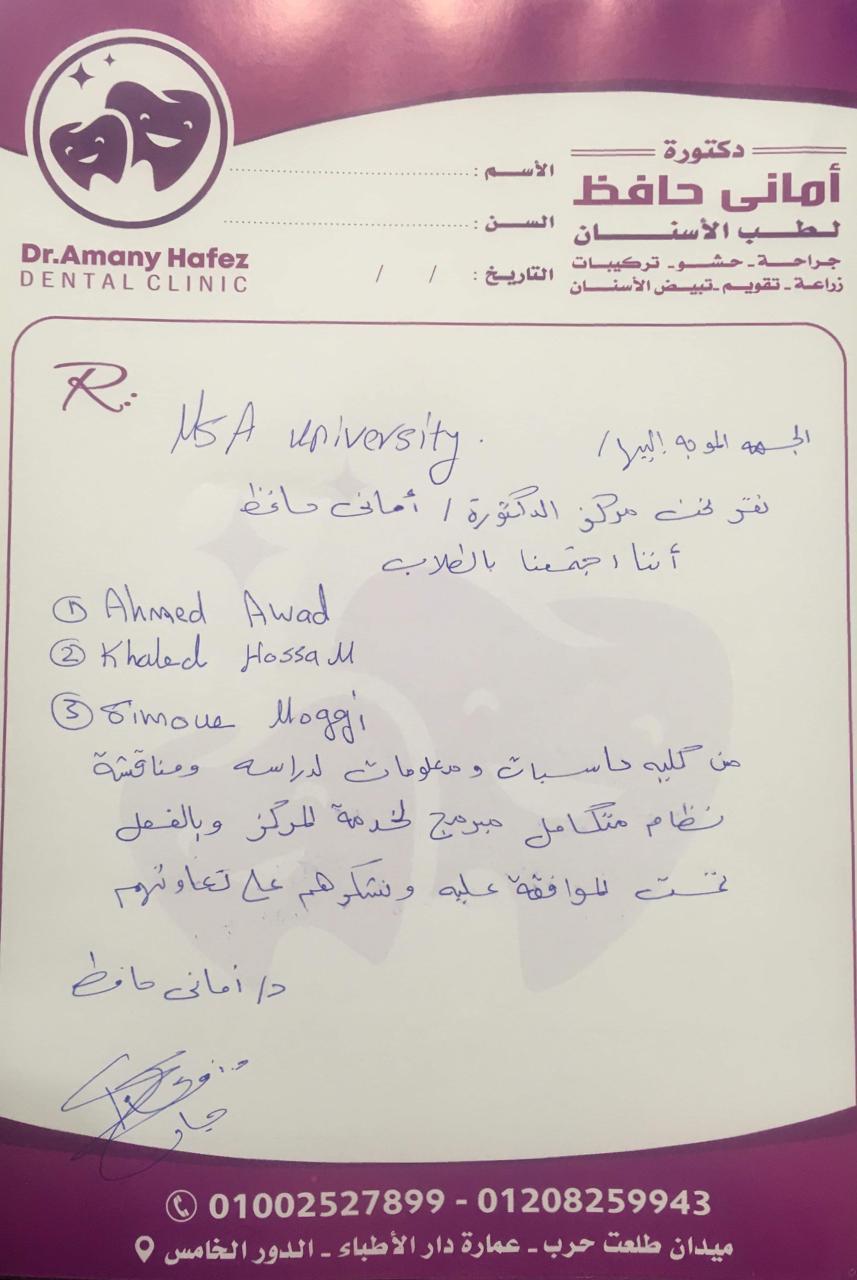 دكتورة
أمانى حافظ
لطب الأسنان
جراحة - حشو - تركيبات
زراعة - تقويم - تبيض الأسنان
الأسم :
السن :
التاريخ : / /
Dr.Amany Hafez
DENTAL CLINIC
R:
الجهه الموجه إليها / MSA University.
نقر نحن مركز الدكتورة / أمانى حافظ
أننا اجتمعنا بالطلاب
① Ahmed Awad
② Khaled Hossam
③ Simone Moggi
من كليه حاسبات ومعلومات لدراسه ومناقشة
نظام متكامل مبرمج لخدمة المركز وبالفعل
تمت الموافقة عليه ونشكرهم على تعاونهم
د/ أمانى حافظ
01002527899 - 01208259943
ميدان طلعت حرب - عمارة دار الأطباء - الدور الخامس